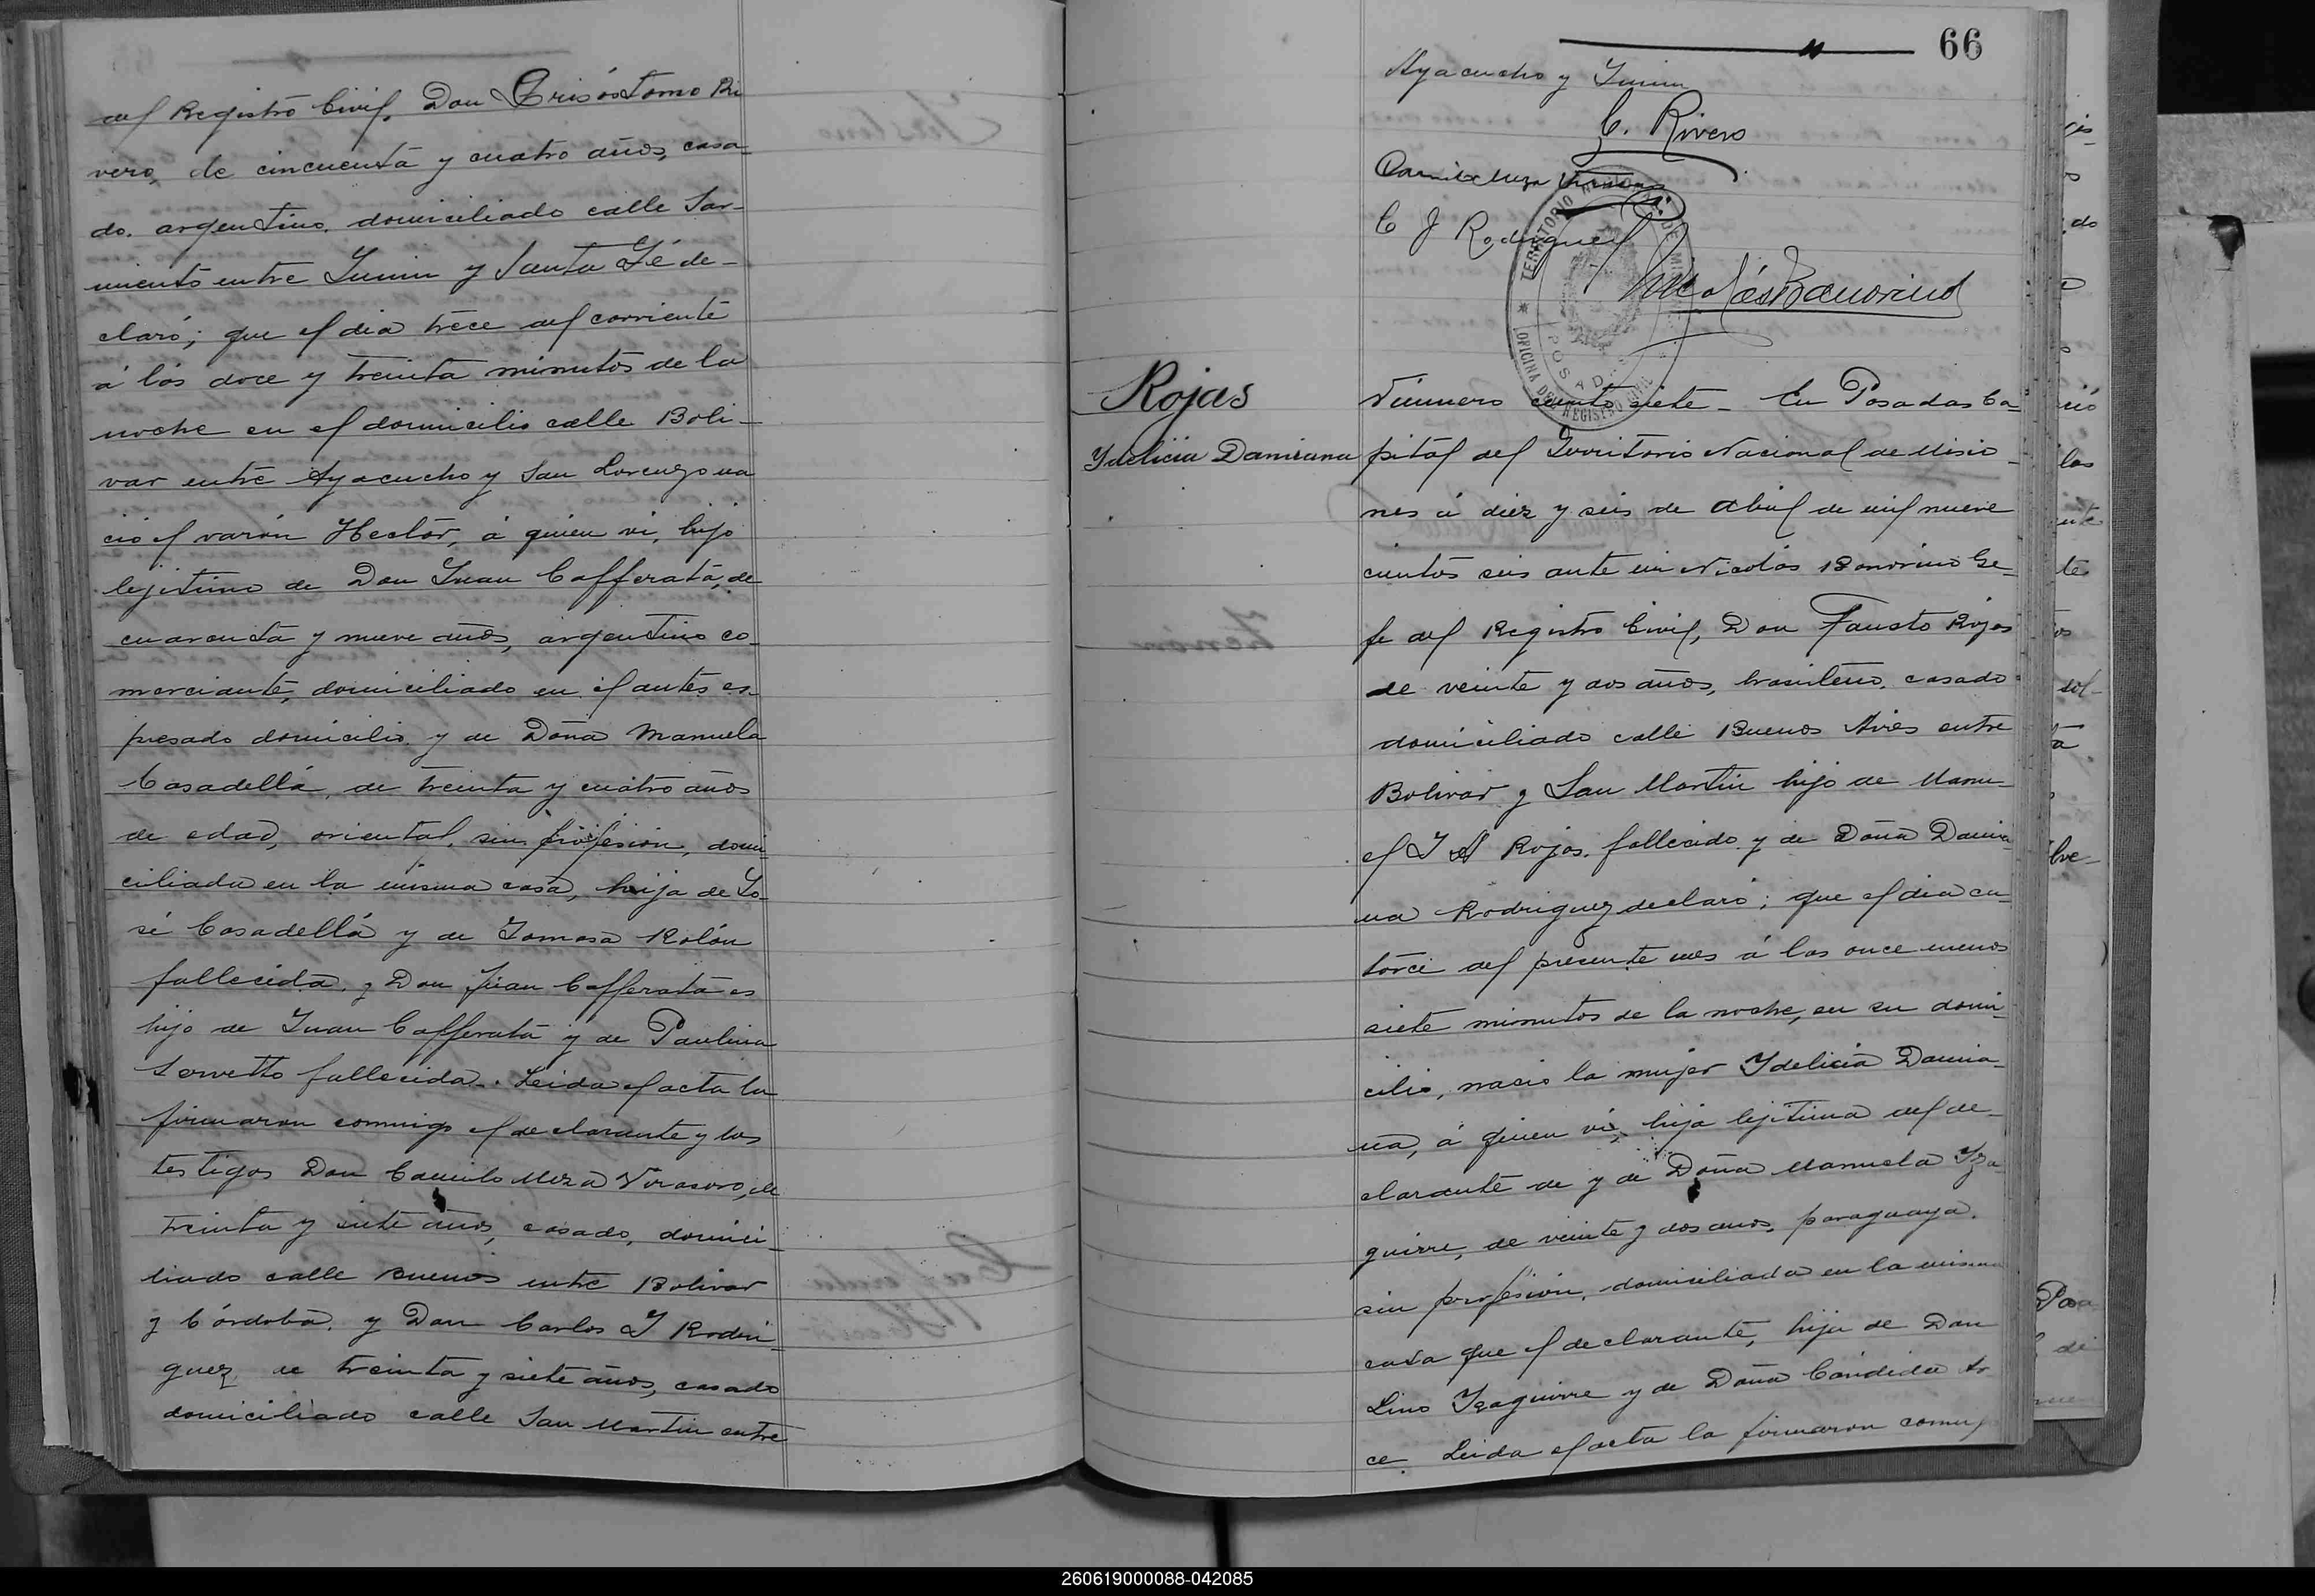 del Registro Civil, Don Crisóstomo Ri
vero, de cincuenta y cuatro años, casa-
do, argentino, domiciliado calle Sar-
miento entre Junin y Santa Fé de-
claró; que el dia trece del corriente
á las doce y treinta minutos de la
noche en el domicilio calle Boli-
var entre Ayacucho y San Lorenzo na
ció el varón Hector, á quien vi, hijo
lejitimo de Don Juan Cafferata, de
cuarenta y nueve años, argentino co-
merciante, domiciliado en el antes es-
presado domicilio, y de Doña Manuela
Casadellá, de treinta y cuatro años
de edad, oriental, sin profesion, domi-
ciliada en la misma casa, hija de Jo-
sé Casadellá y de Tomasa Rolón
fallecida, y Don Juan Cafferata es
hijo de Juan Cafferata y de Paulina
Servetto fallecida. Leida el acta la
firmaron conmigo el declarante y los
testigos Don Camilo Meza Virasoro, de
treinta y siete años, casado, domici-
liado calle Buenos entre Bolivar
y Córdoba, y Don Carlos J Rodri-
guez de treinta y siete años, casado
domiciliado calle San Martin entre
66
Ayacucho y Junin
C. Rivero
C J Rodriguez
Nicolás Bonorino
TERRITORIO NACIONAL DE MISIONES
POSADAS
OFICINA DEL REGISTRO CIVIL
Rojas
Ydelicia Damiana
Número ciento siete - En Posadas Ca-
pital del Territorio Nacional de Misio-
nes á diez y seis de Abril de mil nueve
cientos seis ante mi Nicolás Bonorino Ge-
fe del Registro Civil, Don Fausto Rojas
de veinte y dos años, brasilero, casado
domiciliado calle Buenos Aires entre
Bolivar y San Martin hijo de Manu-
el J A Rojas, fallecido y de Doña Damia-
na Rodriguez declaró; que el dia ca-
torce del presente mes á las once menos
siete minutos de la noche, en su domi-
cilio, nació la mujer Ydelicia Damia-
na, á quien vi, hija lejitima del de-
clarante de y de Doña Manuela Yza
guirre, de veinte y dos anos, paraguaya,
sin profesion, domiciliada en la misma
casa que el declarante, hija de Don
Lino Yzaguirre y de Doña Cándida Ar
ce. Leida el acta la firmaron conmigo
260619000088-042085